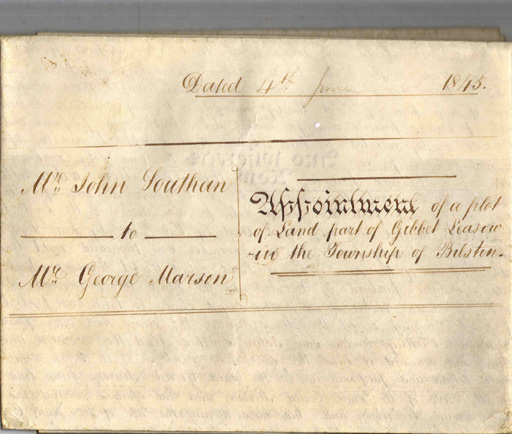 Dated 4th June 1845.
Mr. John Southan
to
Mr. George Marson
Appointment of a plot
of Land part of Gibbet Leasow
in the Township of Bilston.